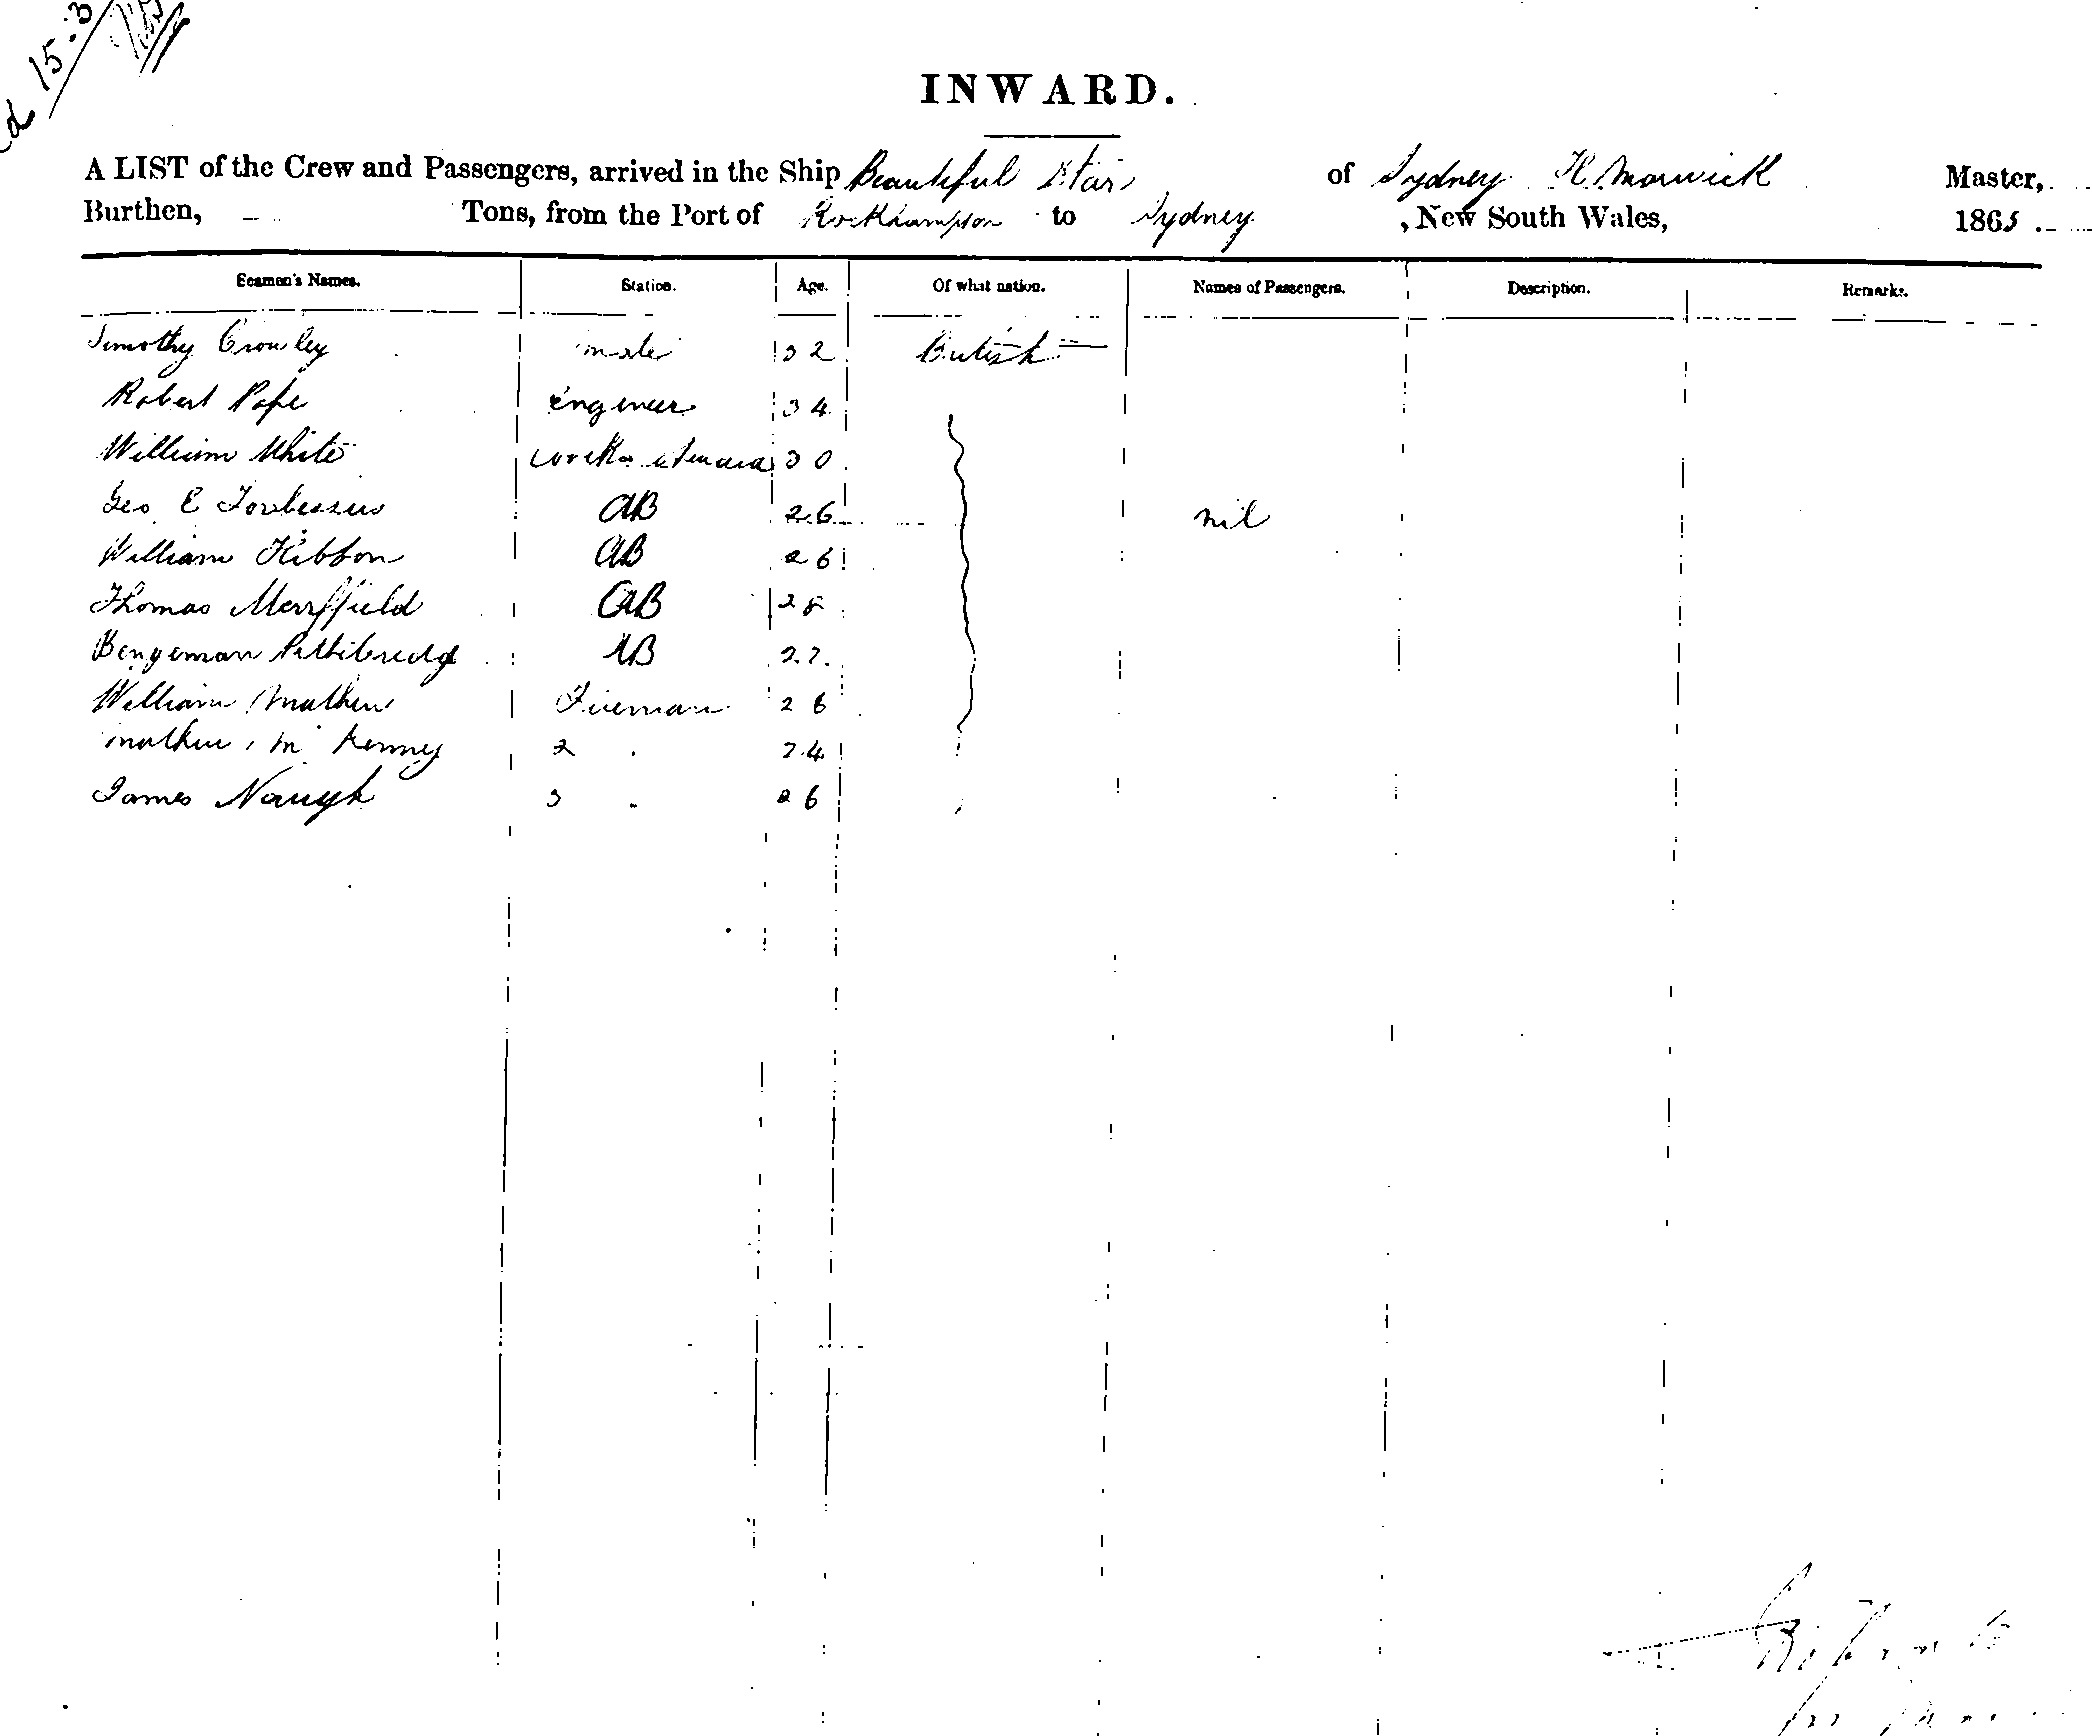 15.3
INWARD.
A LIST of the Crew and Passengers, arrived in the Ship Beautiful Star of Sydney H. Marwick Master,
Burthen, - Tons, from the Port of Rockhampson to Sydney, New South Wales, 1865
Seamen's Names. Station. Age. Of what nation. Names of Passengers. Description. Remarks.
Timothy Crowley mate 32 British
Robert Pope engineer 34
William White 30
Geo E AB 26 nil
William Kibbon AB 26
Thomas Merrffield AB 28
Bengeman AB 27
William Mathew Fireman 26
Mathew Mc Kenny 2 " 24
James Naugh 3 " 26